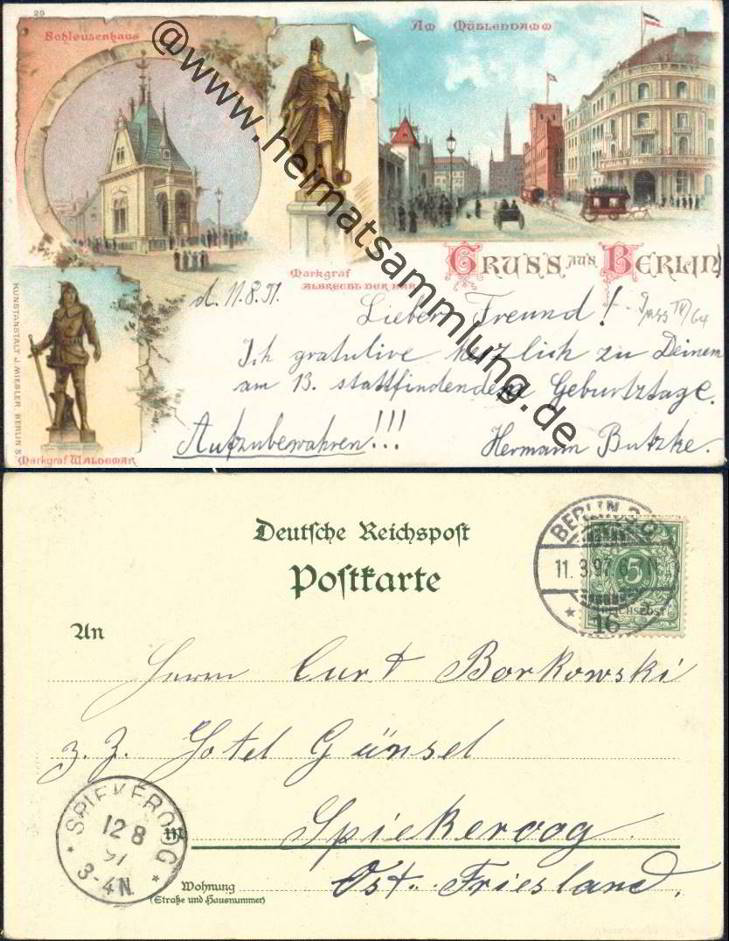 29
Schleusenhaus
Am Mühlendamm
@www.heimatsammlung.de
Markgraf
ALBRECHT DER BÄR
GRUSS AUS BERLIN
d. 11.8.97.
Lieber Freund!
Ich gratulire herzlich zu Deinem
am 13. stattfindenden Geburtztage.
Aufzubewahren!!!
Hermann Butzke.
Markgraf WALDEMAR
KUNSTANSTALT J. MIESLER, BERLIN S.
Deutsche Reichspost
Postkarte
BERLIN
11. 8. 97
16
5
REICHSPOST
An
Herrn Curt Borkowski
z. Z. Hotel Günsel
in
Spiekeroog.
Ost-Friesland.
SPIEKEROOG
12 8
97
3-4N.
Wohnung
(Straße und Hausnummer)